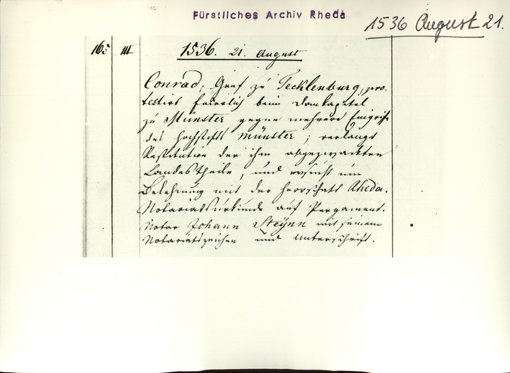 Fürstliches Archiv Rheda
1536 August 21.
165 III
1536. 21. August
Conrad, Graf zu Tecklenburg, pro-
testirt feierlich beim Domkapitel
zu Münster gegen mehrere Eingriffe
des Hochstifts Münster; verlangt
Restitution der ihm abgezwackten
Landestheile, und ersucht um
Belehnung mit der Herrschaft Rheda.
Notariatsurkunde auf Pergament.
Notar Johann Steynn mit seinem
Notariatszeichen und Unterschrift.